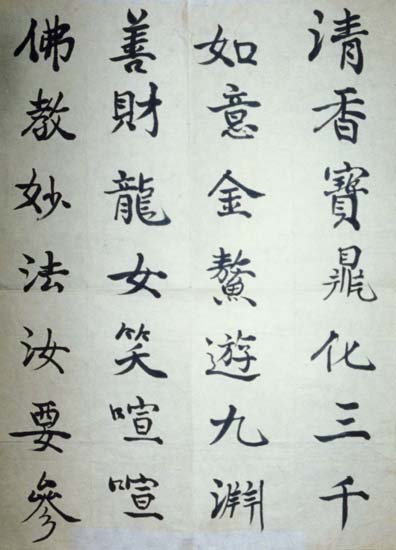 清香寶鼎化三千
如意金鰲遊九淵
善財龍女笑喧喧
佛教妙法汝要參